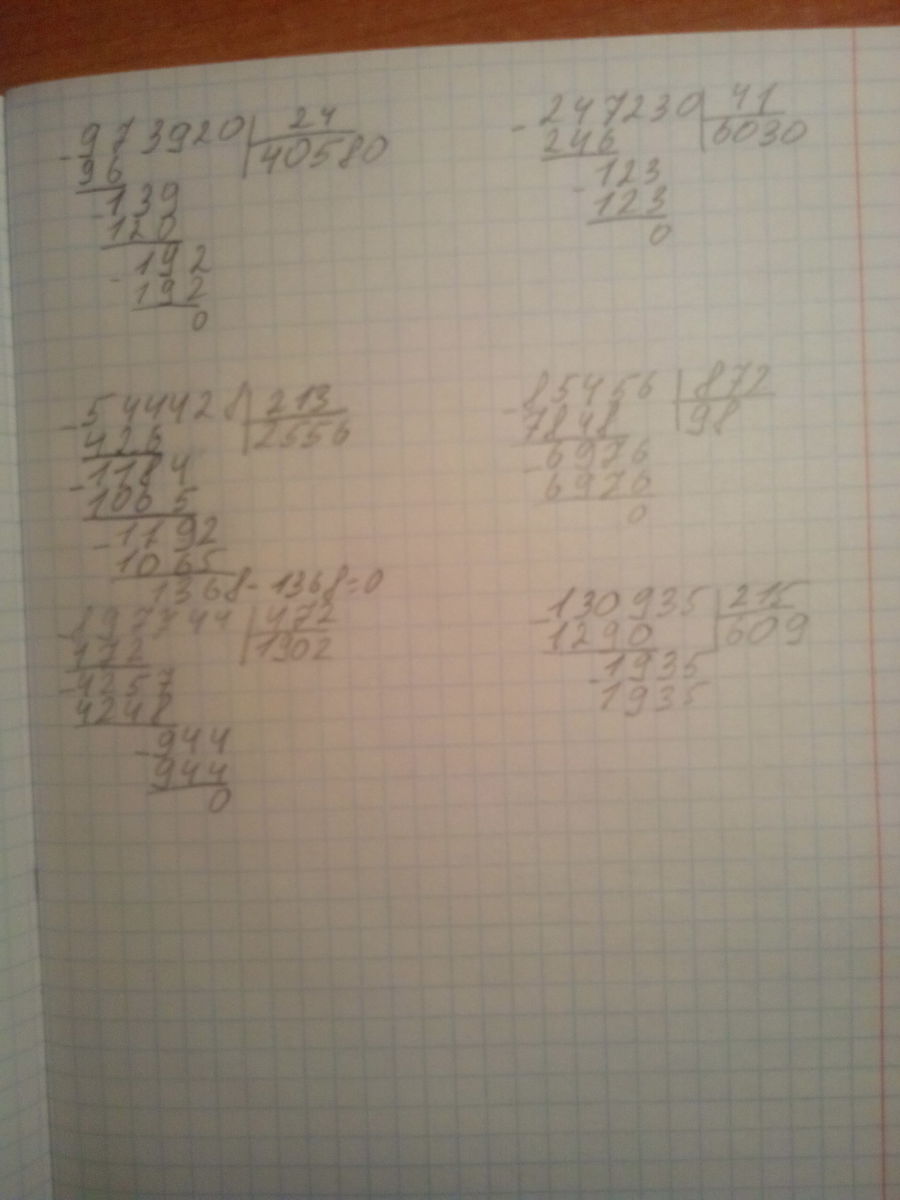 - 973920 | 24
96 | 40580
- 139
120
- 192
192
0
- 247230 | 41
246 | 6030
- 123
123
0
- 544428 | 213
426 | 2556
- 1184
1065
- 1192
1065
1368 - 1368 = 0
- 85456 | 872
7848 | 98
- 6976
6976
0
- 897744 | 472
472 | 1902
- 4257
4248
- 944
944
0
- 130935 | 215
1290 | 609
- 1935
1935